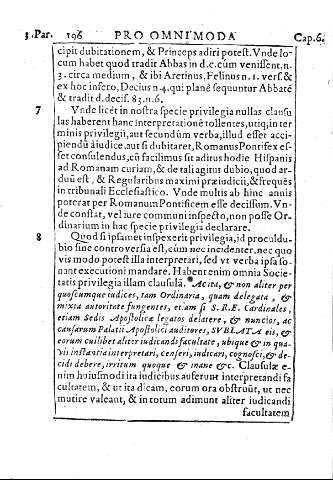 3. Par. 196 PRO OMNIMODA Cap. 6.
cipit dubitationem, & Princeps adiri potest. Vnde lo-
cum habet quod tradit Abbas in d.c. cùm venissent. n.
3. circa medium, & ibi Aretinus, Felinus n. 1. vers. &
ex hoc infero, Decius n. 4. qui planè sequuntur Abbatē
& tradit d. decis. 83. n. 6.
7 Vnde licèt in nostra specie priuilegia nullas clausu
las haberent hanc interpretationē tollentes, vtiq; in ter
minis priuilegij, aut secundùm verba, illud esset acci-
piendū à iudice. aut si dubitaret, Romanus Pontifex es-
set consulendus, cū facilimus sit aditus hodie Hispanis
ad Romanam curiam, & de tali agitur dubio, quod ar-
duū est, & Regularibus maximi præiudicij, & frequēs
in tribunali Ecclesiastico. Vnde multis ab hinc annis
poterat per Romanum Pontificem esse decisum. Vn-
de constat, vel iure communi inspecto, non posse Or-
dinarium in hac specie priuilegia declarare.
8 Quod si ipsamet inspexerit priuilegia, id proculdu-
bio sine controuersia est, cùm nec incidenter, nec quo
vis modo possit illa interpretari, sed vt verba ipsa so-
nant executioni mandare. Habent enim omnia Socie-
tatis priuilegia illam clausulā. Acita, & non aliter per
quoscumque iudices, tam Ordinaria, quam delegata, &
mixta autoritate fungentes, etiam si S. R. E. Cardinales,
etiam Sedis Apostolicæ legatos delatere, & nuncios, ac
causarum Palatij Apostolici auditores, SVBLATA eis, &
eorum cuilibet aliter iudicandi facultate, vbique & in qua-
uis instantia interpretari, censeri, iudicari, cognosci, & de-
cidi debere, irritum quoque & inane &c. Clausulæ e-
nim huiusmodi ita iudicibus auferunt interpretandi fa
cultatem, & vt ita dicam, eorum ora obstruūt, vt nec
mutire valeant, & in totum adimunt aliter iudicandi
facultatem